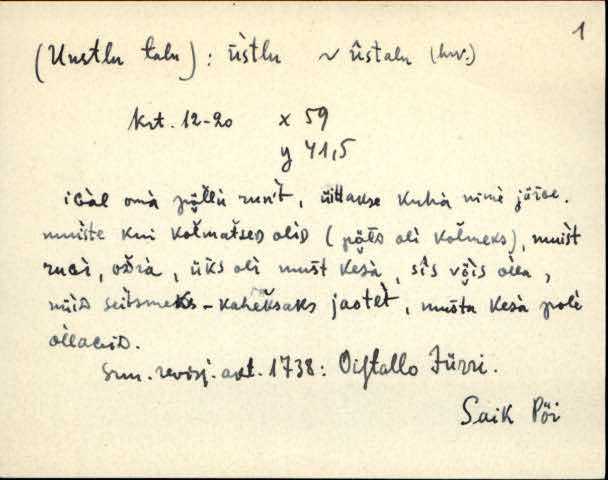 1
(Uustlu talu) : üstlu ~ üstalu (hrv.)
krt. 12-20 x 59
y 41,5
iGàl omà põllù runt, üittakse kuhà nimè järGe.
muiste kui kolmatseD oliD (põlD oli kolmeks), muist
ruGi, oDrà, üks oli must kesà, sìs võis olla,
nüiD seitsmeks-kaheksaks jaotèt, musta kesà polè
ollaGiD.
Srm. revisj. akt. 1738: Oistallo Jürri.
Saik Pöi